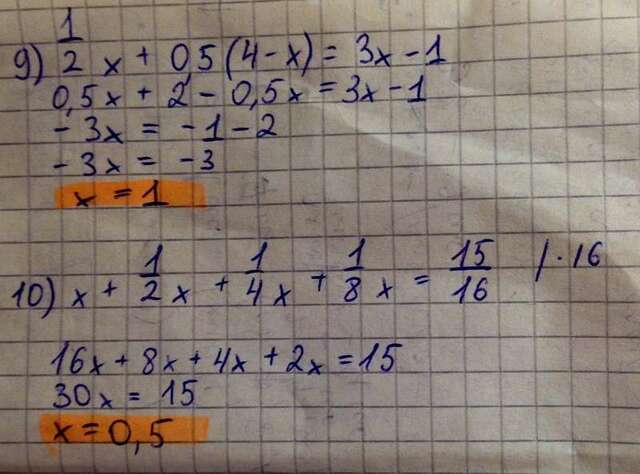 9) 1/2 x + 0,5 (4 - x) = 3x - 1
0,5x + 2 - 0,5x = 3x - 1
- 3x = - 1 - 2
- 3x = - 3
x = 1
10) x + 1/2 x + 1/4 x + 1/8 x = 15/16 / · 16
16x + 8x + 4x + 2x = 15
30x = 15
x = 0,5